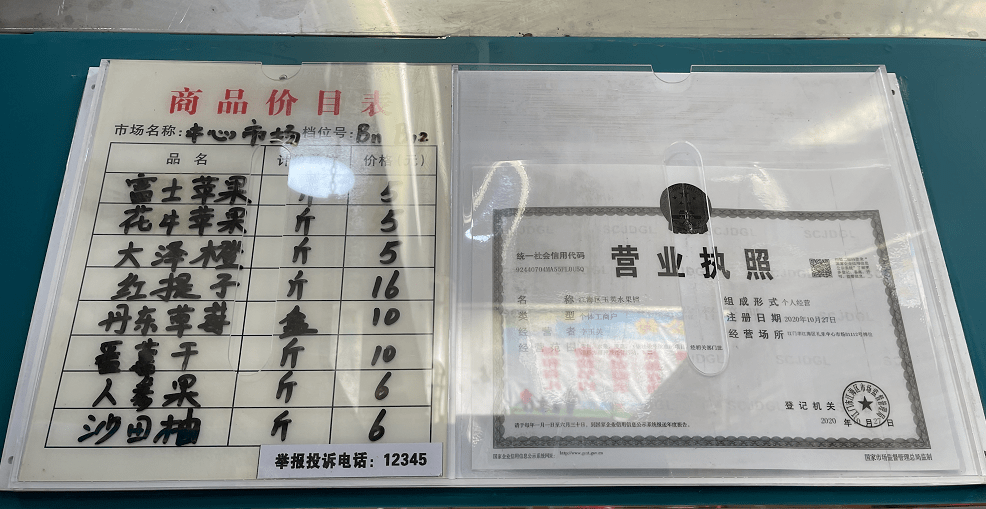 商品价目表
市场名称:中心市场 档位号:B11 B12
品名 计 价格(元)
富士苹果 斤 5
花牛苹果 斤 5
大泽橙 斤 5
红提子 斤 16
丹东草莓 盒 10
番薯干 斤 10
人参果 斤 6
沙田柚 斤 6
举报投诉电话:12345
营业执照
统一社会信用代码
名称 江海区玉英水果档
类型 个体工商户
经营者
经营范围
组成形式 个人经营
注册日期 2020年10月27日
经营场所
登记机关
2020年10月27日
请于每年一月一日至六月三十日,回国家企业信用信息公示系统报送年度报告。
国家企业信用信息公示系统网址: http://www.gsxt.gov.cn
国家市场监督管理总局监制